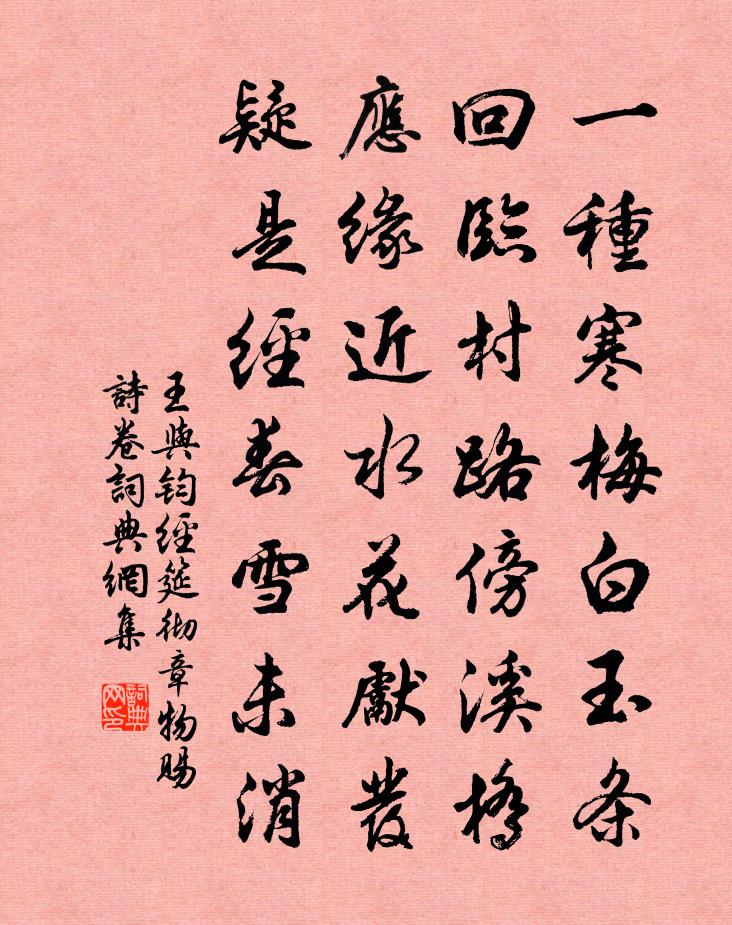 一種寒梅白玉条
回臨村路傍溪橋
應緣近水花獻發
疑是經春雪未消
王與鈞經筵彻章物賜
詩卷詞典網集
詞典网印